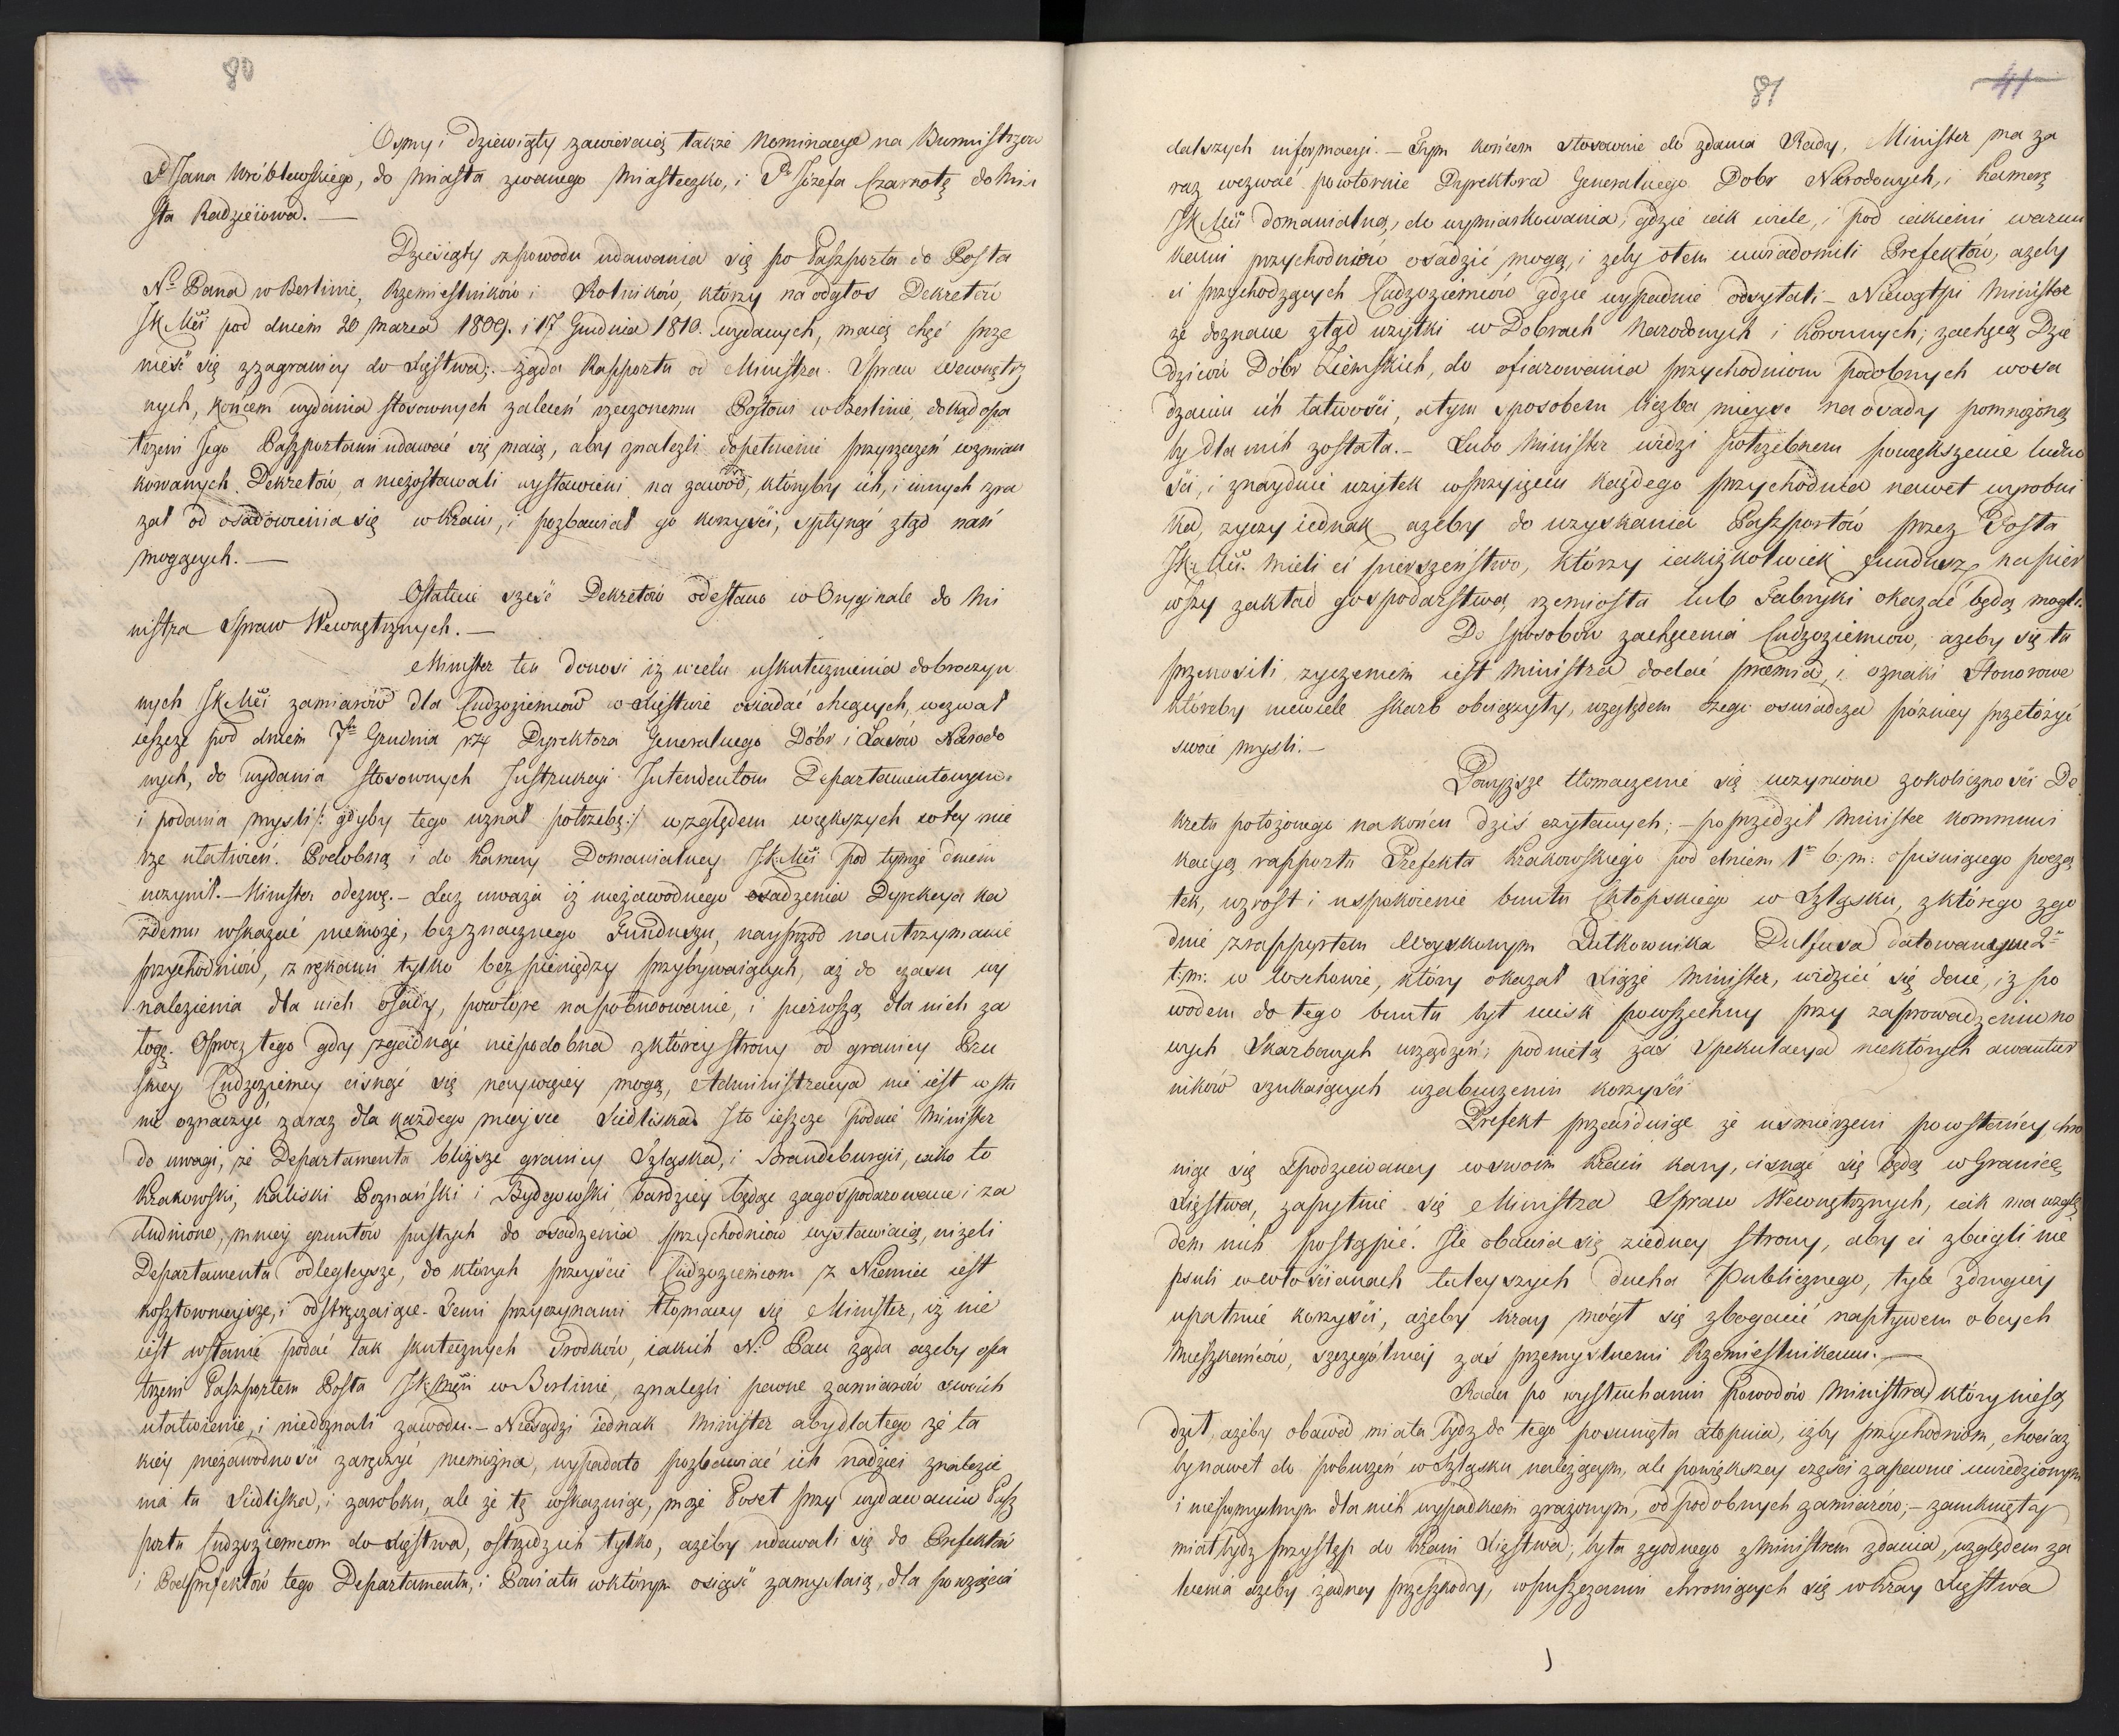 80
Osmy i dziewiąty zawieraią także Nominacye na Burmistrzów
P. Jana Wróblewskiego, do Miasta zwanego Miasteczko, i P. Józefa Czarnotę do Mia
sta Radzieiowa. —
Dziesiąty z powodu udawania się po Paszporta do Posła
N. Pana w Berlinie, Rzemieslników i Rolników, którzy na odgłos Dekretów
JKMci pod dniem 20 Marca 1809. i 17 Grudnia 1810. wydanych, maią chęć prze
nieść się z zagranicy do Xięstwa; żąda Rapportu od Ministra Spraw Wewnętrz
nych, końcem wydania stosownych zaleceń rzeczonemu Posłowi w Berlinie, dokąd opa
trzeni Jego Paszportami udawać się maią, aby znalezli dopełnienie przyrzeczeń wzmian
kowanych Dekretów, a niezostawali wystawieni na zawód, któryby ich, i innych zra
zał od osadowienia się w Kraiu, i pozbawiał go korzyści, spłynąć ztąd nań
mogących. —
Ostatnie sześć Dekretów odesłano w Oryginale do Mi
nistra Spraw Wewnętrznych. —
Minister ten donosi iż w celu uskutecznienia dobroczyn
nych JKMci zamiarów dla Cudzoziemców w Xięstwie osiadać chcących, wezwał
ieszcze pod dniem 7 Grudnia r. z. Dyrektora Generalnego Dóbr i Lasów Narodo
wych, do wydania stosownych Instrukcyi Intendentom Departamentowym
i podania mysli /: gdyby tego uznał potrzebę :/ względem większych w tey mie
rze ułatwień. Podobną i do Kamery Domanialney JKMci pod tymże dniem
uczynił. — Minister odezwę. — Lecz uważa iż niezawodnego osadzenia Dyrekcya ka
żdemu wskazać niemoże, bez znacznego Funduszu, nayprzód na utrzymanie
przychodniów, z rękami tylko bez pieniędzy przybywaiących, aż do czasu wy
nalezienia dla nich osady, powtóre na pobudowanie, i pierwszą dla nich za
łogę. Oprócz tego gdy zgadnąć niepodobna z którey strony od granicy Pru
skiey Cudzoziemcy cisnąć się naywięcey mogą, Administracya nie iest w sta
nie oznaczyć zaraz dla każdego mieysce Siedliska. To ieszcze podaie Minister
do uwagi, że Departamenta bliższe granicy Szląska, i Brandeburgii, iako to
Krakowski, Kaliski Poznański i Bydgowski, bardziey będąc zagospodarowane i za
ludnione, mniey gruntów pustych do osadzenia przychodniów wystawiaią, niżeli
Departamenta odlegleysze, do których przeyście Cudzoziemcom z Niemiec iest
kosztownieysze, i odstręczaiące. Temi przyczynami tłomaczy się Minister, iż nie
iest w stanie podać tak skutecznych środków, iakich N. Pan żąda ażeby opa
trzeni Paszportem Posła JKMci w Berlinie, znalezli pewne zamiarów swoich
ułatwienie, i niedoznali zawodu. — Niesądzi iednak Minister aby dlatego że ta
kiey niezawodności zaręczyć niemożna, wypadało pozbawiać ich nadziei znalezie
nia tu Siedliska, i zarobku, ale że tę wskazuiąc, może Poseł przy wydawaniu Pasz
portu Cudzoziemcom do Xięstwa, ostrzedz ich tylko, ażeby udawali się do Prefektów
i Podprefektów tego Departamentu, i Powiatu w którym osiąść zamyslaią, dla powzięcia
81
41
dalszych informacyi. — Tym końcem stosownie do zdania Rady, Minister ma za
raz wezwać powtórnie Dyrektora Generalnego Dobr Narodowych, i Kamerę
JKMci domanialną, do wymiarkowania, gdzie iak wiele, i pod iakiemi warun
kami przychodniów osadzić mogą, i żeby o tem uwiadomili Prefektów, ażeby
ci przychodzących Cudzoziemców gdzie wypadnie odsyłali — Niewątpi Minister
że doznane ztąd użytki w Dobrach Narodowych i Koronnych; zachęcą Dzie
dziców Dóbr Ziemskich, do ofiarowania przychodniom podobnych w osa
dzaniu ich łatwości, a tym sposobem liczba mieysc na osady pomnożoną
by dla nich została. — Lubo Minister widzi potrzebnem powiększenie ludno
ści, i znayduie użytek w przyięciu każdego przychodnia nawet wyrobni
ka, życzy iednak ażeby do uzyskania Paszportów przez Posła
JKMci. mieli ci pierszeństwo, którzy iakiżkolwiek fundusz na pier
wszy zakład gospodarstwa rzemiosła lub Fabryki okazać będą mogli.
Do sposobów zachęcenia Cudzoziemców, ażeby się tu
przenosili, życzeniem iest Ministra dodać præmia, i oznaki Honorowe
któreby niewiele Skarb obciążyły, względem czego oswiadcza pózniey przełożyć
swoie mysli. —
Powyższe tłomaczenie się uczynione z okoliczności De
kretu położonego na końcu dziś czytanych; — poprzedził Minister kommuni
kacyą rapportu Prefekta Krakowskiego pod dniem 1 b. m. opisuiącego począ
tek, wzrost i uspokoienie buntu Chłopskiego w Szląsku, z którego zgo
dnie z rapportem Woyskowym Pułkownika Dulfusa datowanym 2
t. m. w Wschowie, który okazał Xiążę Minister, widzieć się daie, iż po
wodem do tego buntu był ucisk powszechny przy zaprowadzeniu no
wych Skarbowych urządzeń; podnietą zaś Spekulacya niektórych awantur
ników szukaiących w zaburzeniu korzyści
Prefekt przewiduiąc że usmierzeni powstańcy, chro
niąc się spodziewaney w swoim Kraiu kary, cisnąć się będą w Granice
Xięstwa, zapytuie się Ministra Spraw Wewnętrznych, iak ma wzglę
dem nich postąpić. Ile obawia się z iedney strony, aby ci zbiegli nie
psuli w włościanach tuteyszych ducha Publicznego, tyle z drugiey
upatruie korzyści, ażeby kray mógł się zbogacić napływem obcych
Mieszkańców, szczególniey zaś przemyslnemi Rzemieslnikami. —
Rada po wysłuchaniu Powodów Ministra, który niesą
dził, ażeby obawa miała bydz do tego posunięta stopnia, iżby przychodniom, chociaż
by nawet do poburzeń w Szląsku należącym, ale powiększey części zapewnie uwiedzionym
i niepomyslnym dla nich wypadkiem zrażonym, od podobnych zamiarów; — zamknięty
miał bydz przystęp do Kraiu Xięstwa; była zgodnego z Ministrem zdania, względem za
lecenia ażeby żadney przeszkody, w puszczaniu chroniących się w Kray Xięstwa